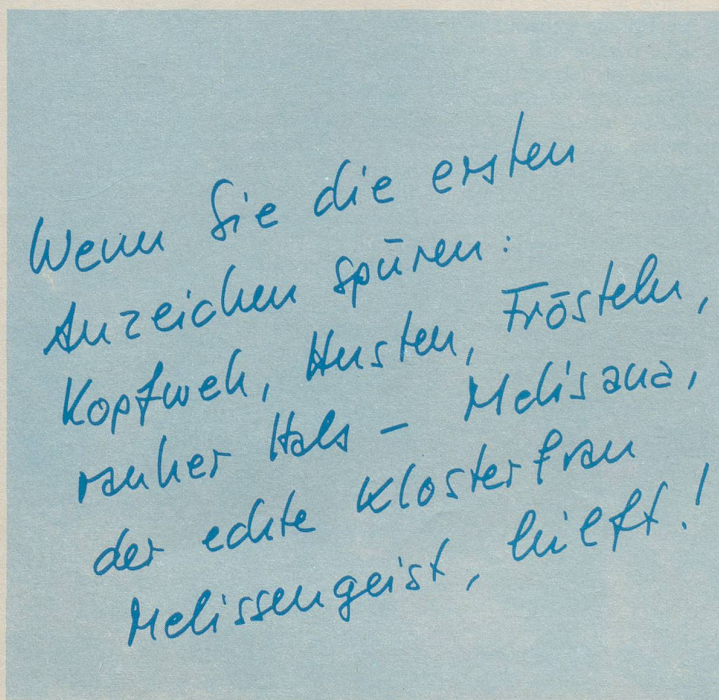 Wenn Sie die ersten
Anzeichen spüren:
Kopfweh, Husten, Frösteln,
rauher Hals – Melisana,
der echte Klosterfrau
Melissengeist, hilft!